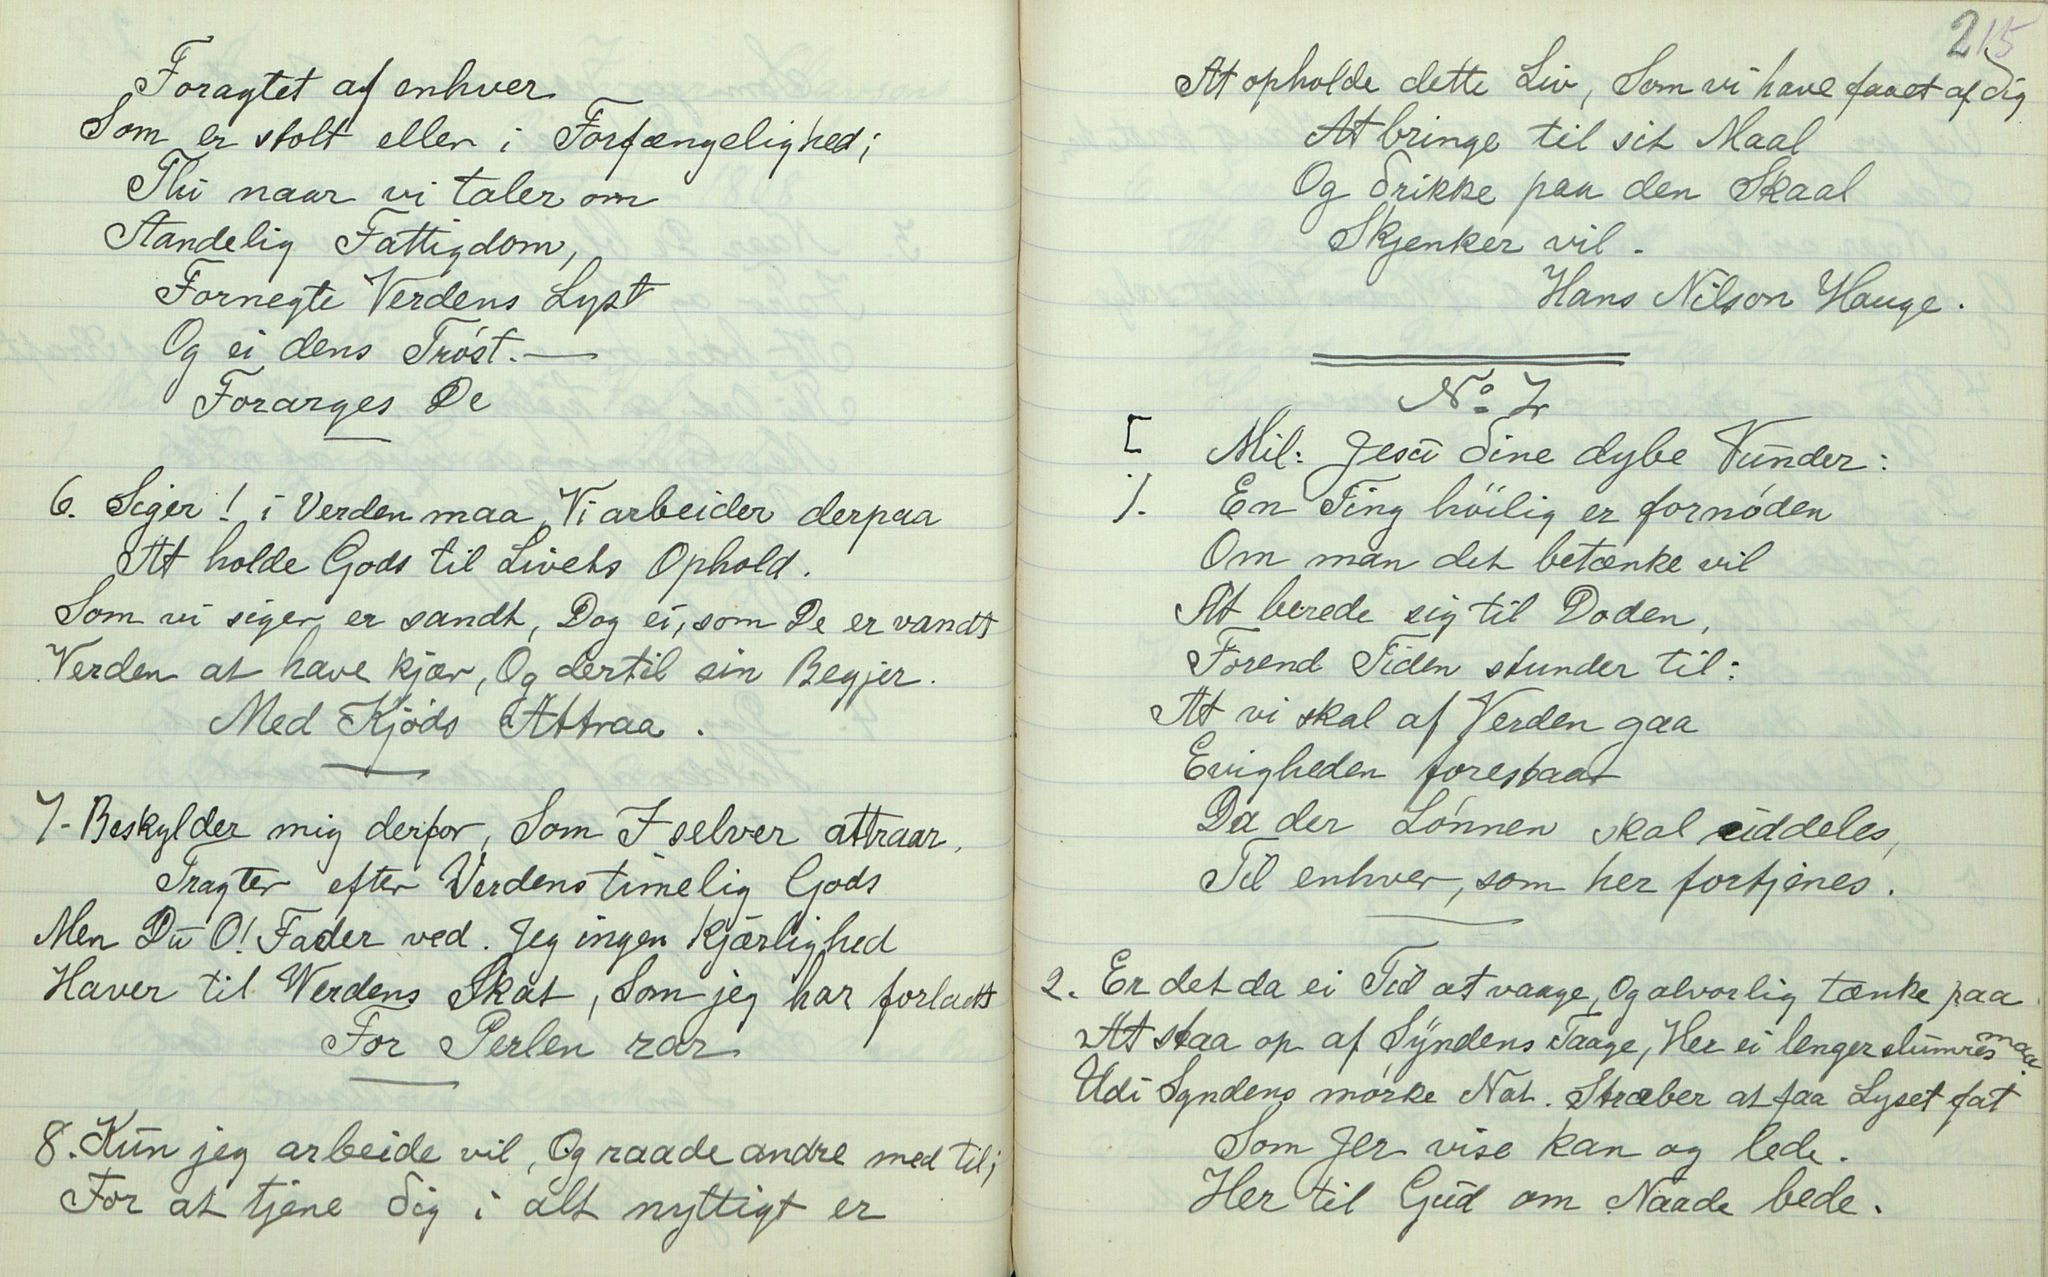 Foragtet af enhver
Som er stolt eller i Forfængelighed;
Thi naar vi taler om
Aandelig Fattigdom,
Fornegte Verdens Lyst
Og ei dens Tröst. —
Forarges De
6. Siger! i Verden maa, Vi arbeider derpaa
At holde Gods til Livets Ophold.
Som vi siger er sandt, Dog ei, som De er vandt
Verden at have kjær, Og dertil sin Begjer.
Med Kjöds Attraa.
7. Beskylder mig derfor, Som I selver attraar,
Tragter efter Verdens timelig Gods
Men Dū O! Fader ved. Jeg ingen Kjærlighed
Haver til Verdens Skat, Som jeg har forladt
For Perlen rar
8. Kūn jeg arbeide vil, Og raade andre med til;
For at tjene dig i alt nyttigt er
215
At opholde dette Liv, Som vi have faaet af dig
At bringe til sit Maal
Og drikke paa den Skaal
Skjenker vil.
Hans Nilson Hauge.
No. 7
[ Mil: Jesū dine dybe Vūnder:
1. En Ting höilig er fornöden
Om man det betænke vil
At berede sig til Doden,
Forend Tiden stunder til:
At vi skal af Verden gaa
Evigheden forestaar
Da der Lönnen skal uddeles,
Til enhver, som her fortjenes.
2. Er det da ei Tid at vaage, Og alvorlig tænke paa
At staa op af Sÿndens Taage, Her ei lenger slūmres maa.
Udi Syndens mörke Nat. Stræber at faa Lyset fat
Som Jer vise kan og lede.
Her til Gūd om Naade bede.